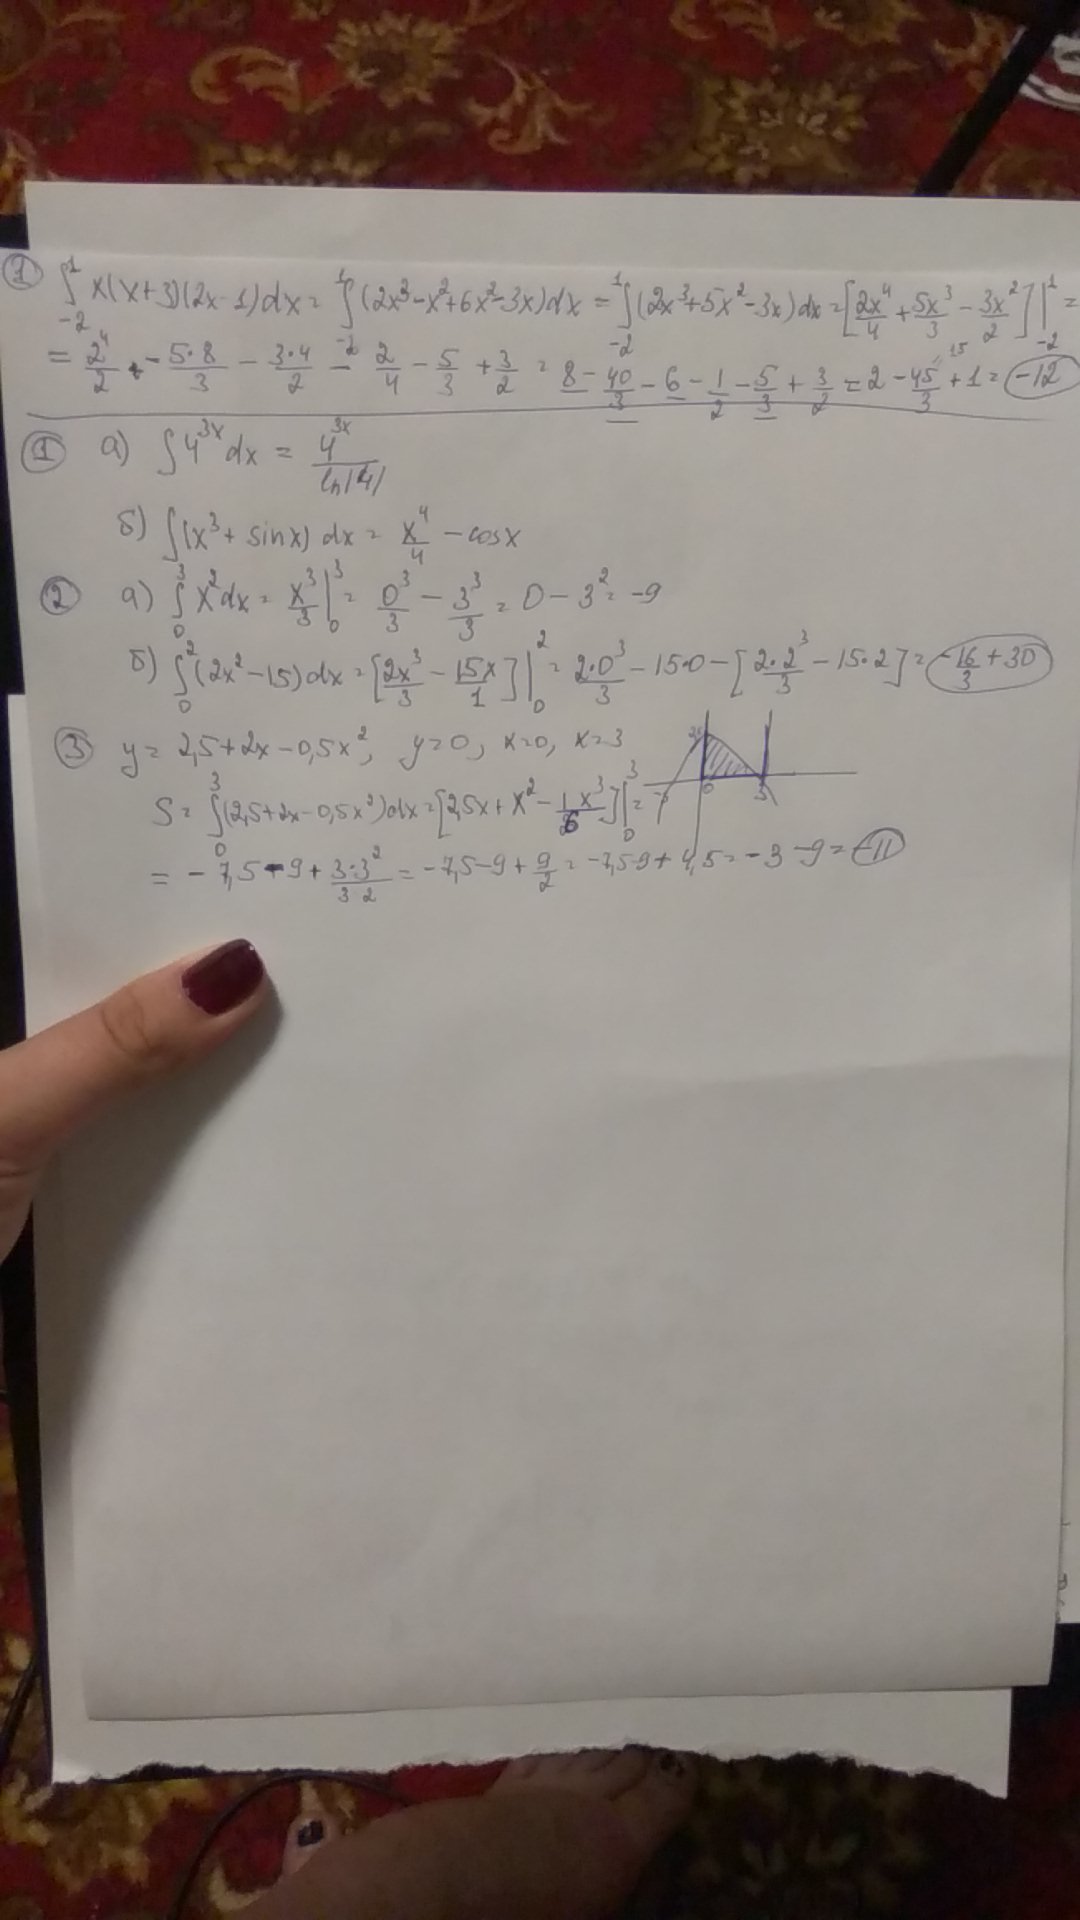 1 ∫₋₂¹ x(x+3)(2x-1)dx = ∫₋₂¹ (2x³-x²+6x²-3x)dx = ∫₋₂¹ (2x³+5x²-3x)dx = [2x⁴/4 + 5x³/3 - 3x²/2]|₋₂¹ =
= 2⁴/2 - 5·8/3 - 3·4/2 - 2/4 - 5/3 + 3/2 = 8 - 40/3 - 6 - 1/2 - 5/3 + 3/2 = 2 - 45/3 + 1 = -12
15
1 а) ∫4³ˣdx = 4³ˣ/ln|4|
б) ∫(x³+sinx)dx = x⁴/4 - cosx
2 а) ∫₀³ x²dx = x³/3|₀³ = 0³/3 - 3³/3 = 0 - 3² = -9
б) ∫₀² (2x²-15)dx = [2x³/3 - 15x/1]|₀² = 2·0³/3 - 15·0 - [2·2³/3 - 15·2] = -16/3 + 30
3 y = 2,5+2x-0,5x², y=0, x=0, x=3
S = ∫₀³ (2,5+2x-0,5x²)dx = [2,5x + x² - 1x³/6]|₀³ =
0 3
= -7,5 - 9 + 3·3²/3·2 = -7,5 - 9 + 9/2 = -7,5-9 + 4,5 = -3 - 9 = -11